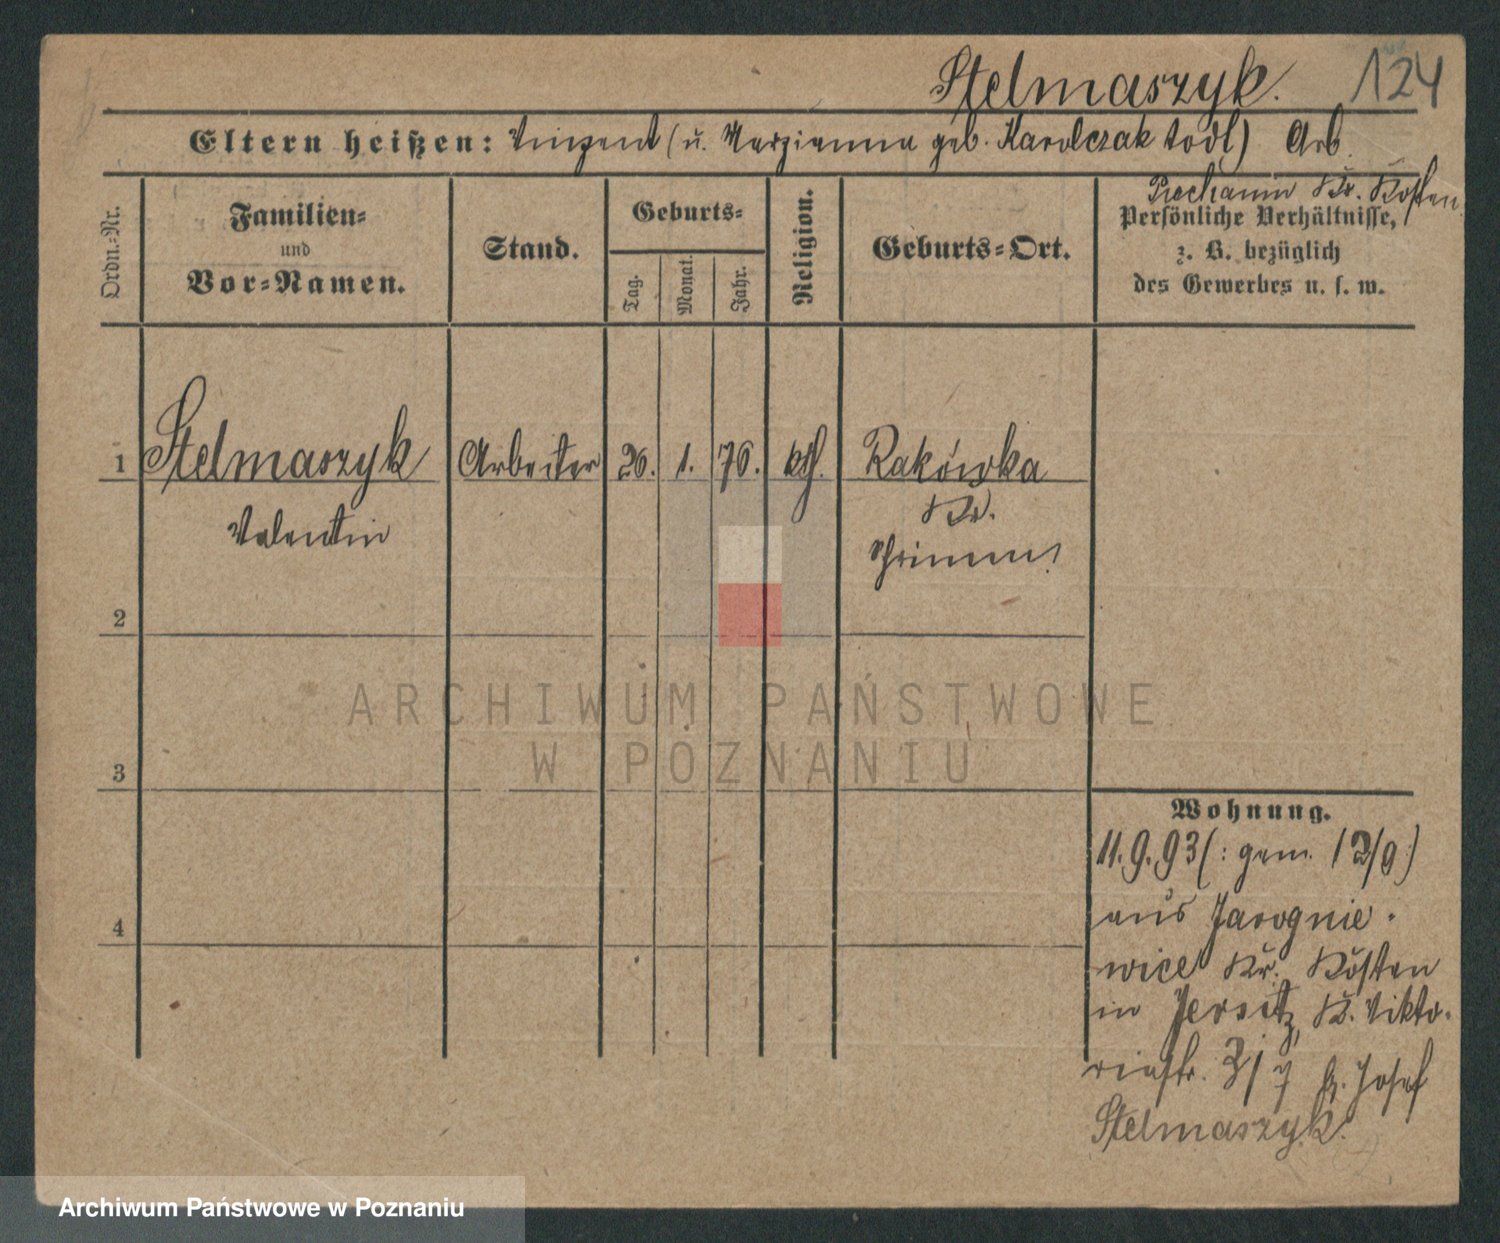 Stelmaszyk. 124
Eltern heißen: Vinzent (u. Marzianna geb. Karolczak todt) Arb.
Kr. Kosten
Ordn.=Nr.
Familien=
und
Vor=Namen.
Stand.
Geburts=
Tag.
Monat.
Jahr.
Religion.
Geburts=Ort.
Persönliche Verhältnisse,
z. B. bezüglich
des Gewerbes u. s. w.
1 Stelmaszyk Arbeiter 26. 1. 76. kth. Rakówka
Valentin
Kr.
Schrimm
2
3
4
ARCHIWUM PAŃSTWOWE
W POZNANIU
Wohnung.
11.9.93 (: gem. 12/9:)
aus Jarognie-
wice Kr. Kosten
in Jersitz, K. Vikto-
riastr. 3/7 b. Josef
Stelmaszyk.
Archiwum Państwowe w Poznaniu